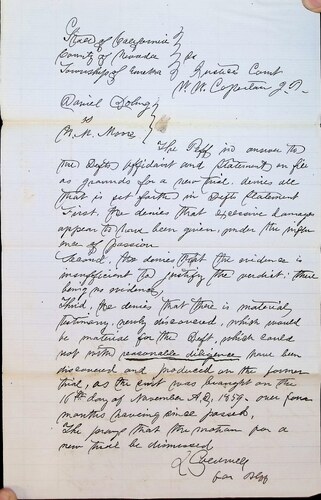 State of California
County of Nevada } ss
Township of Eureka } Justice Court
W. W. J.P.
Daniel
vs
Moore
The Plff in answer to
the Defts affidavit and statement on file
as grounds for a new trial, denies all
that is set forth in Defts statement
First, He denies that excessive damages
appear to have been given, under the influ
ence of passion
Second, He denies that the evidence is
insufficient to justify the verdict; there
being no evidence,
Third, He denies that there is material
testimony, newly discovered, which would
be material for the Deft, which could
not with reasonable diligence have been
discovered and produced on the former
trial, as the was brought on the
16th day of November A.D, 1859. over four
months having since passed,
The prays that the motion for a
new trial be dismissed
for Plff